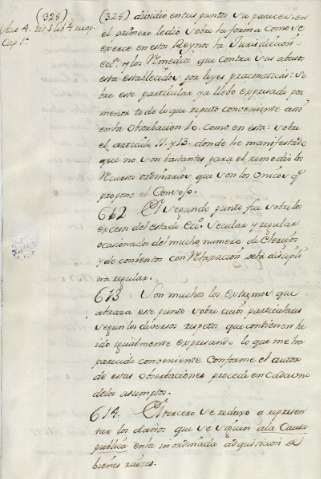 (328)
(328) dividio en tres puntos su parecer en
el primero hablo sobre la forma como se
exerce en estos Reynos la Jurisdiccion
ecl.ca y los Remedios que contra sus abusos
está establecidos por leyes pracmaticas: so
bre este particular ya llebo expresado por
menor todo lo que reputo conveniente assi
en la obserbacion 10. como en esta: sobre
el articulo 11. y 13. donde he manifestado
que no son bastantes para el remedio los
Recursos extraordinarios que son los unicos q.e
propone el Consejo.
612 El segundo punto fue sobre los
excesos del estado Ecc.o Secular y regular
ocasionado del mucho numero de Clerigos
y de conventos con Relaxacion de la discipli
na regular.
613 Son muchos los extremos que
abraza este punto sobre cuios particulares
segun los diversos respetos que contienen he
ido igualmente expresando lo que me ha
parecido conveniente conforme el autor
de estas obserbaciones procede en cada uno
de los asumptos.
614. El tercero se reduce a represen
tar los daños que se siguen a la Causa
publica en la inordinada adquisicion de
bienes raizes.